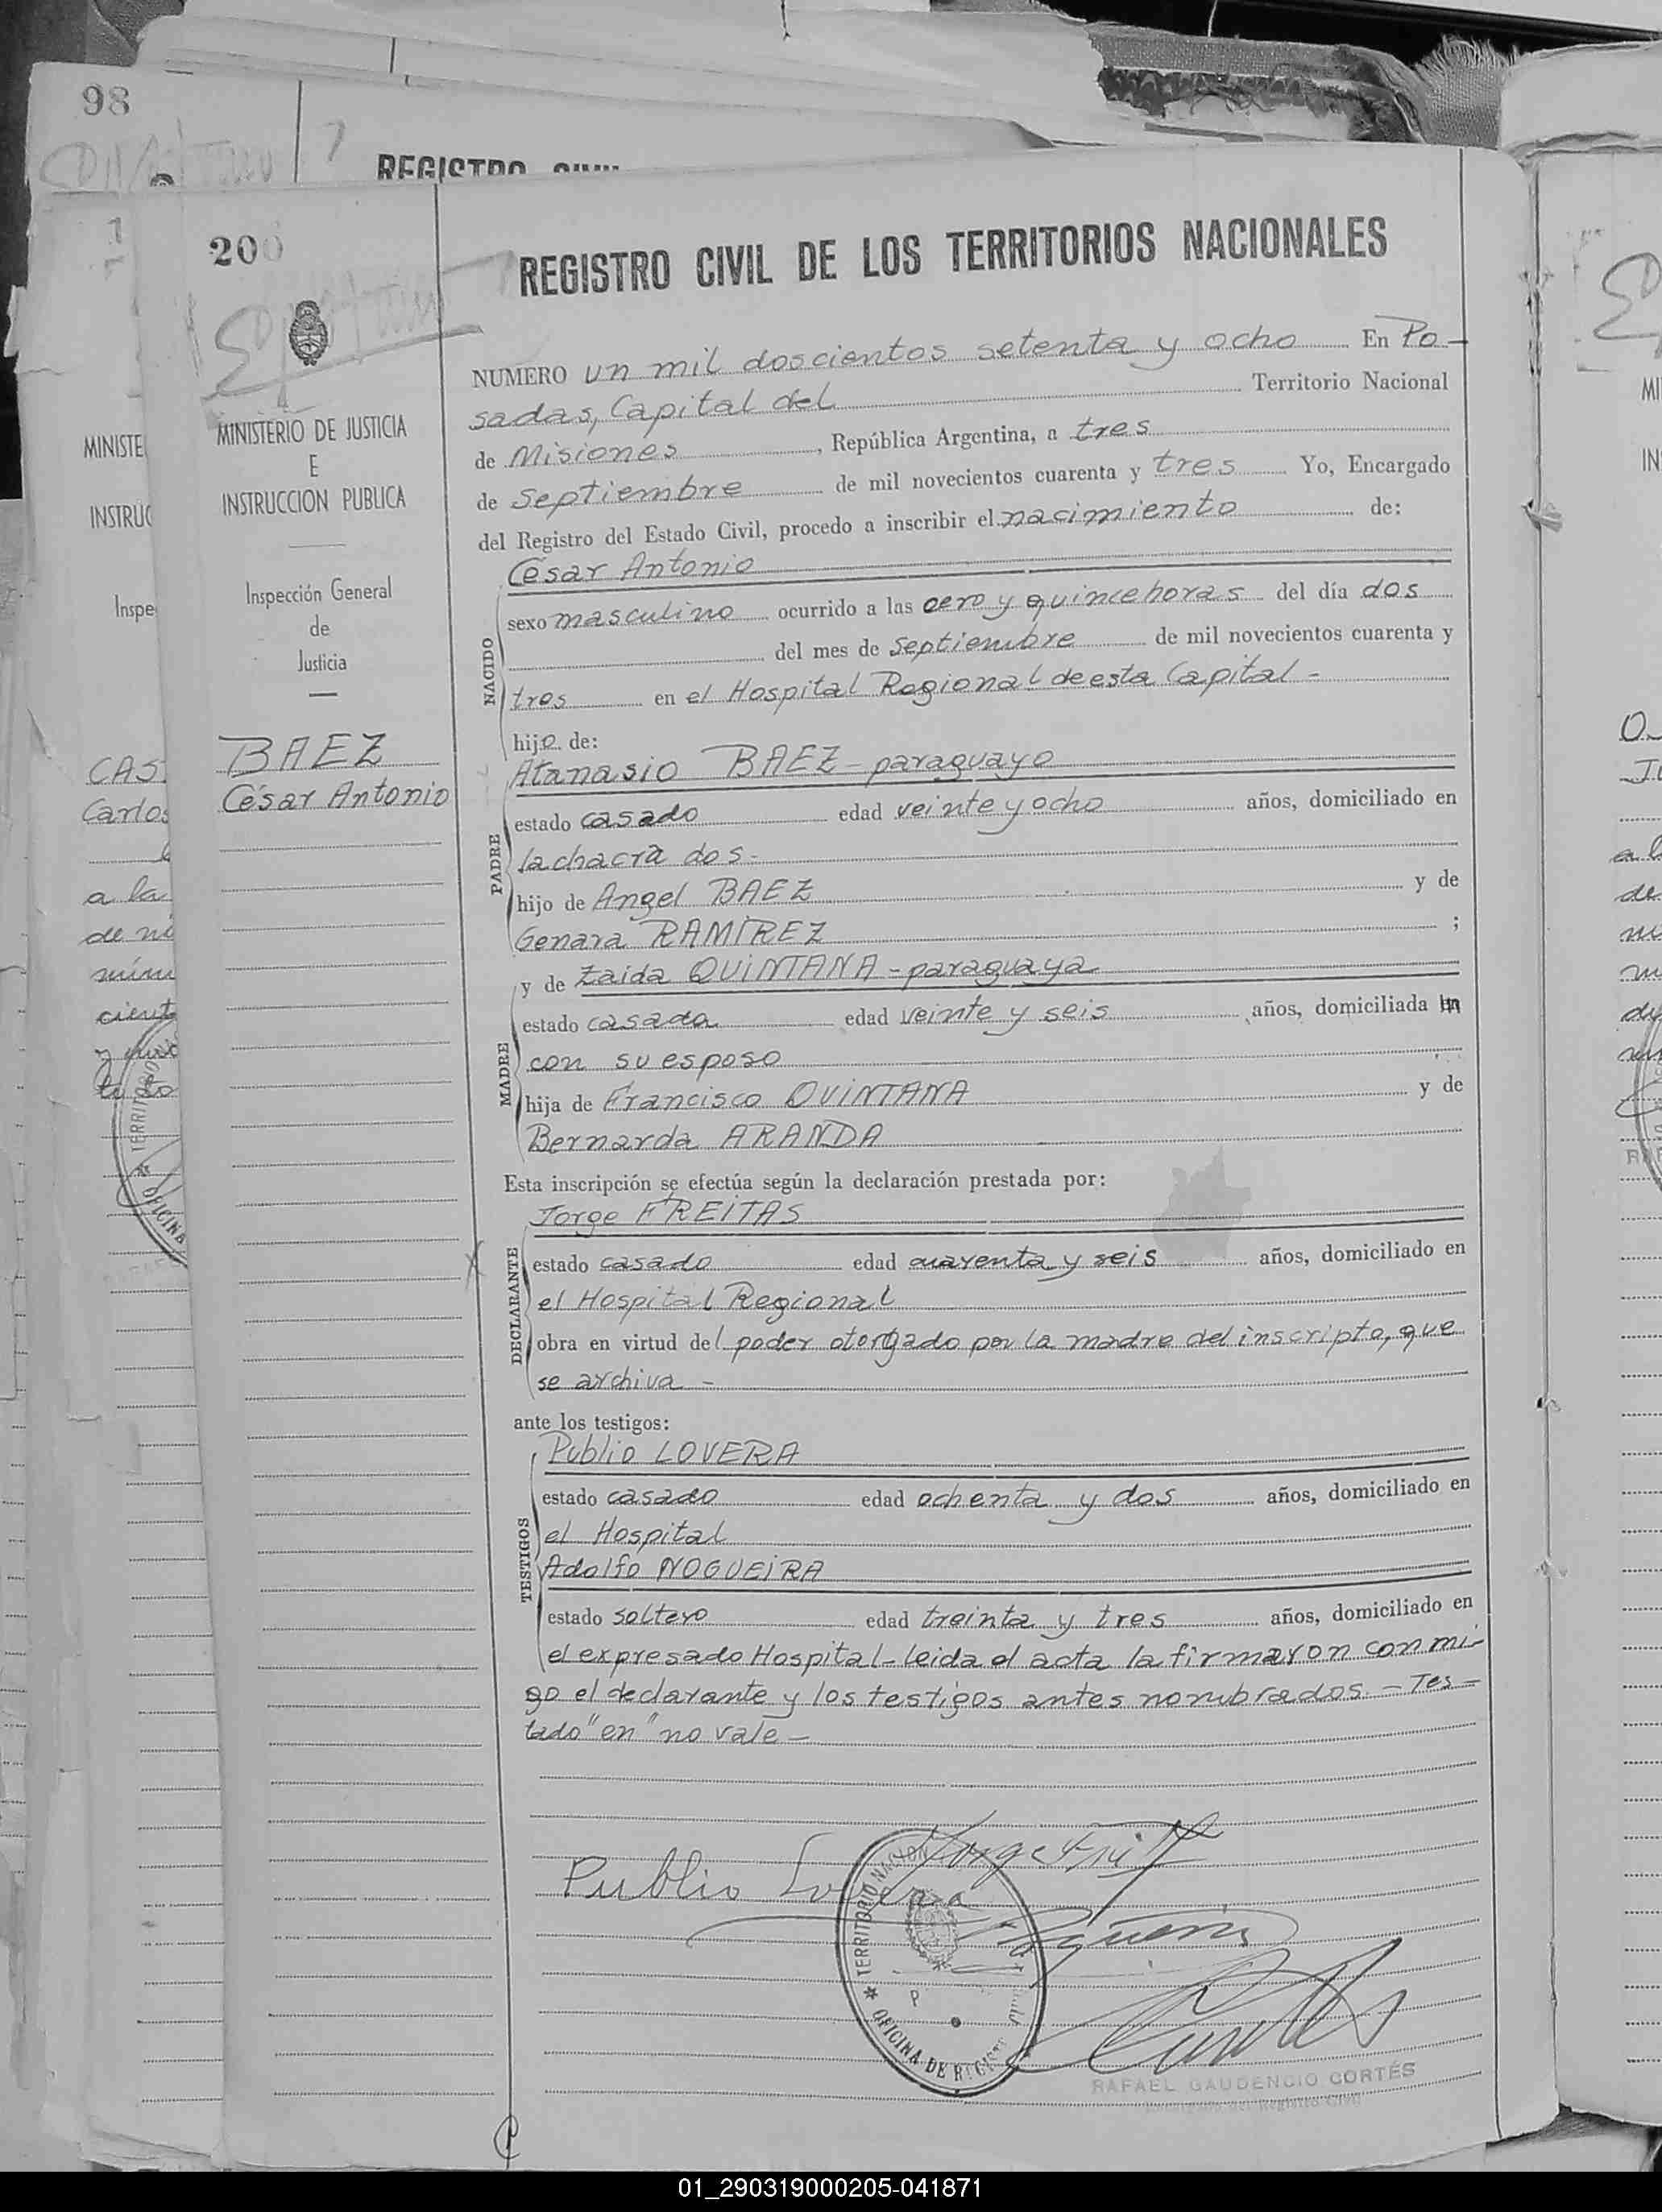 98
REGISTRO CIVIL
200
REGISTRO CIVIL DE LOS TERRITORIOS NACIONALES
NUMERO un mil doscientos setenta y ocho En Po-
sadas, Capital del Territorio Nacional
de Misiones, República Argentina, a tres
de septiembre de mil novecientos cuarenta y tres Yo, Encargado
del Registro del Estado Civil, procedo a inscribir el nacimiento de:
César Antonio
NACIDO
sexo masculino ocurrido a las cero y quince horas del día dos
del mes de septiembre de mil novecientos cuarenta y
tres en el Hospital Regional de esta Capital -
hijo de:
Atanasio BAEZ - paraguayo
PADRE
estado casado edad veinte y ocho años, domiciliado en
la chacra dos -
hijo de Angel BAEZ y de
Genara RAMIREZ ;
y de Zaida QUINTANA - paraguaya
MADRE
estado casada edad veinte y seis años, domiciliada en
con su esposo
hija de Francisco QUINTANA y de
Bernarda ARANDA
Esta inscripción se efectúa según la declaración prestada por:
Jorge FREITAS
DECLARANTE
estado casado edad cuarenta y seis años, domiciliado en
el Hospital Regional
obra en virtud del poder otorgado por la madre del inscripto, que
se archiva -
ante los testigos:
Publio LOVERA
TESTIGOS
estado casado edad ochenta y dos años, domiciliado en
el Hospital
Adolfo NOGUEIRA
estado soltero edad treinta y tres años, domiciliado en
el expresado Hospital - leida el acta la firmaron conmi-
go el declarante y los testigos antes nombrados. - Tes-
tado "en" no vale -
Publio Lovera
TERRITORIO NACION
OFICINA DE REGIST
RAFAEL GAUDENCIO CORTÉS
Encargado del Registro Civil
MINISTERIO DE JUSTICIA
E
INSTRUCCION PUBLICA
Inspección General
de
Justicia
BAEZ
César Antonio
MINISTE
INSTRUC
Inspe
CAS
Carlos
a la
de
TERRITORIO
OFICINA
MI
IN
01_290319000205-041871